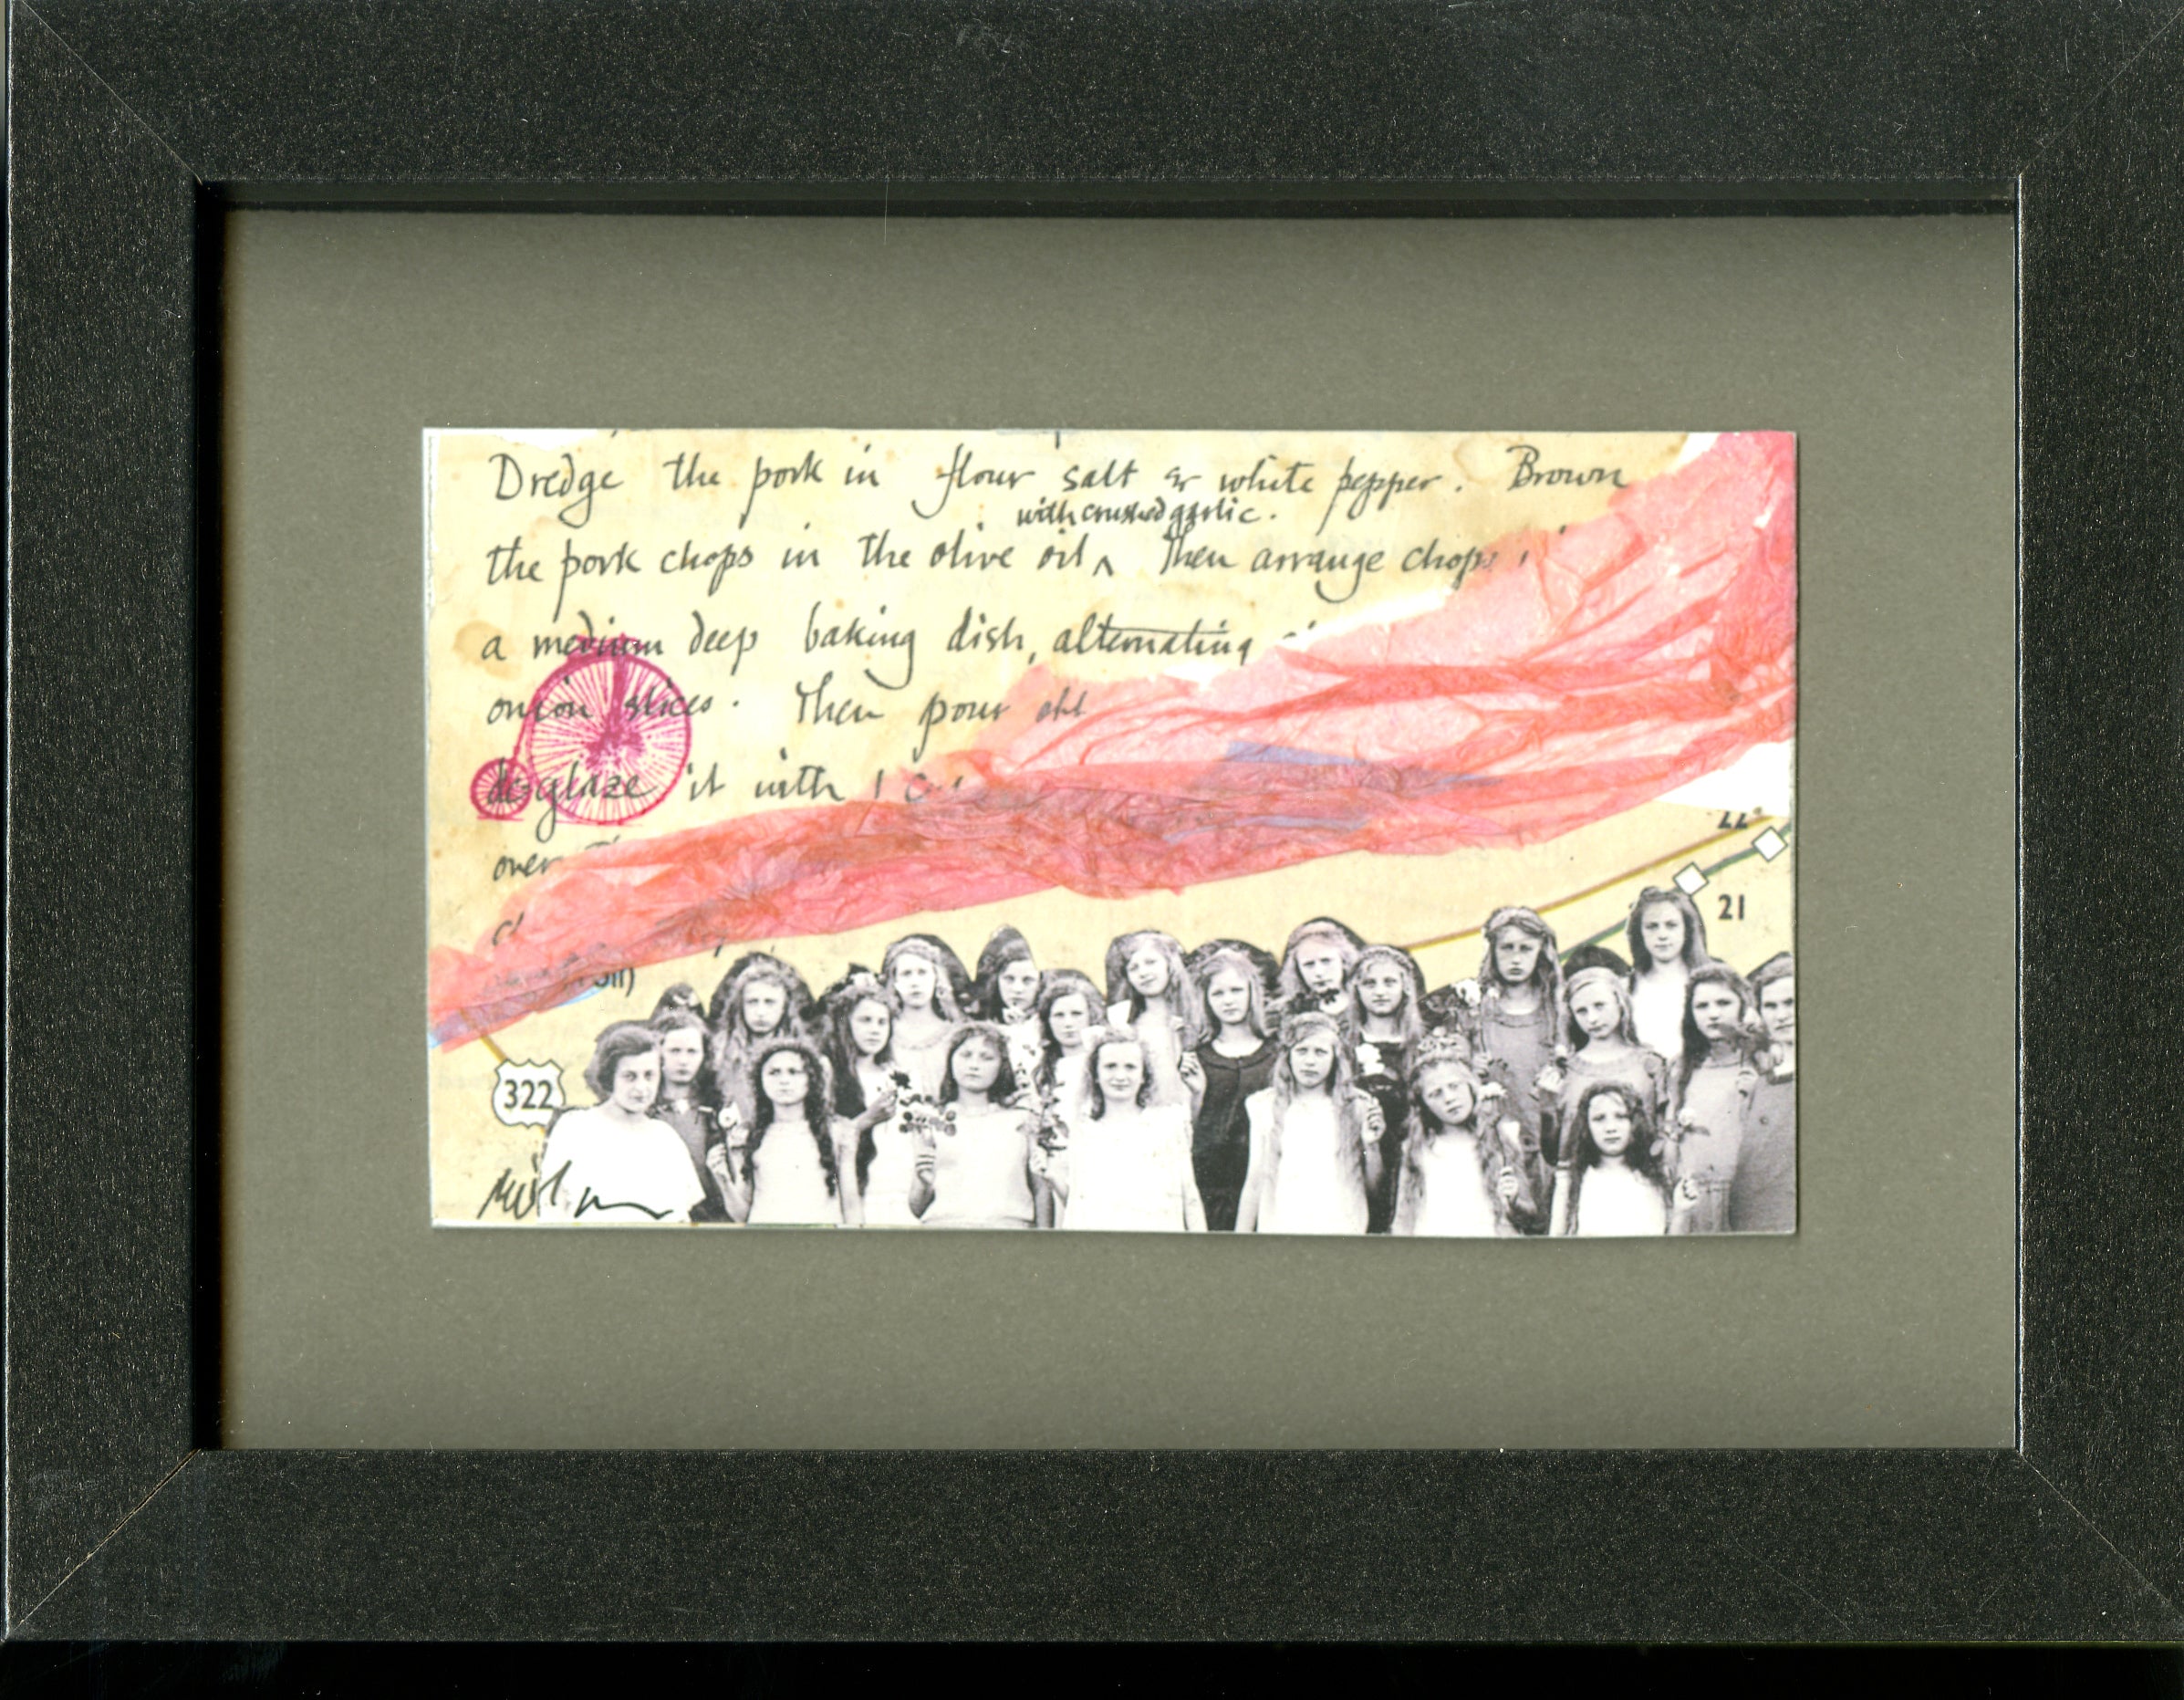 Dredge the pork in flour salt & white pepper. Brown
with crushed garlic.
the pork chops in the olive oil ^ Then arrange chops
a medium deep baking dish, alternating
onion slices. Then pour
deglaze it with 1
over
22
21
322